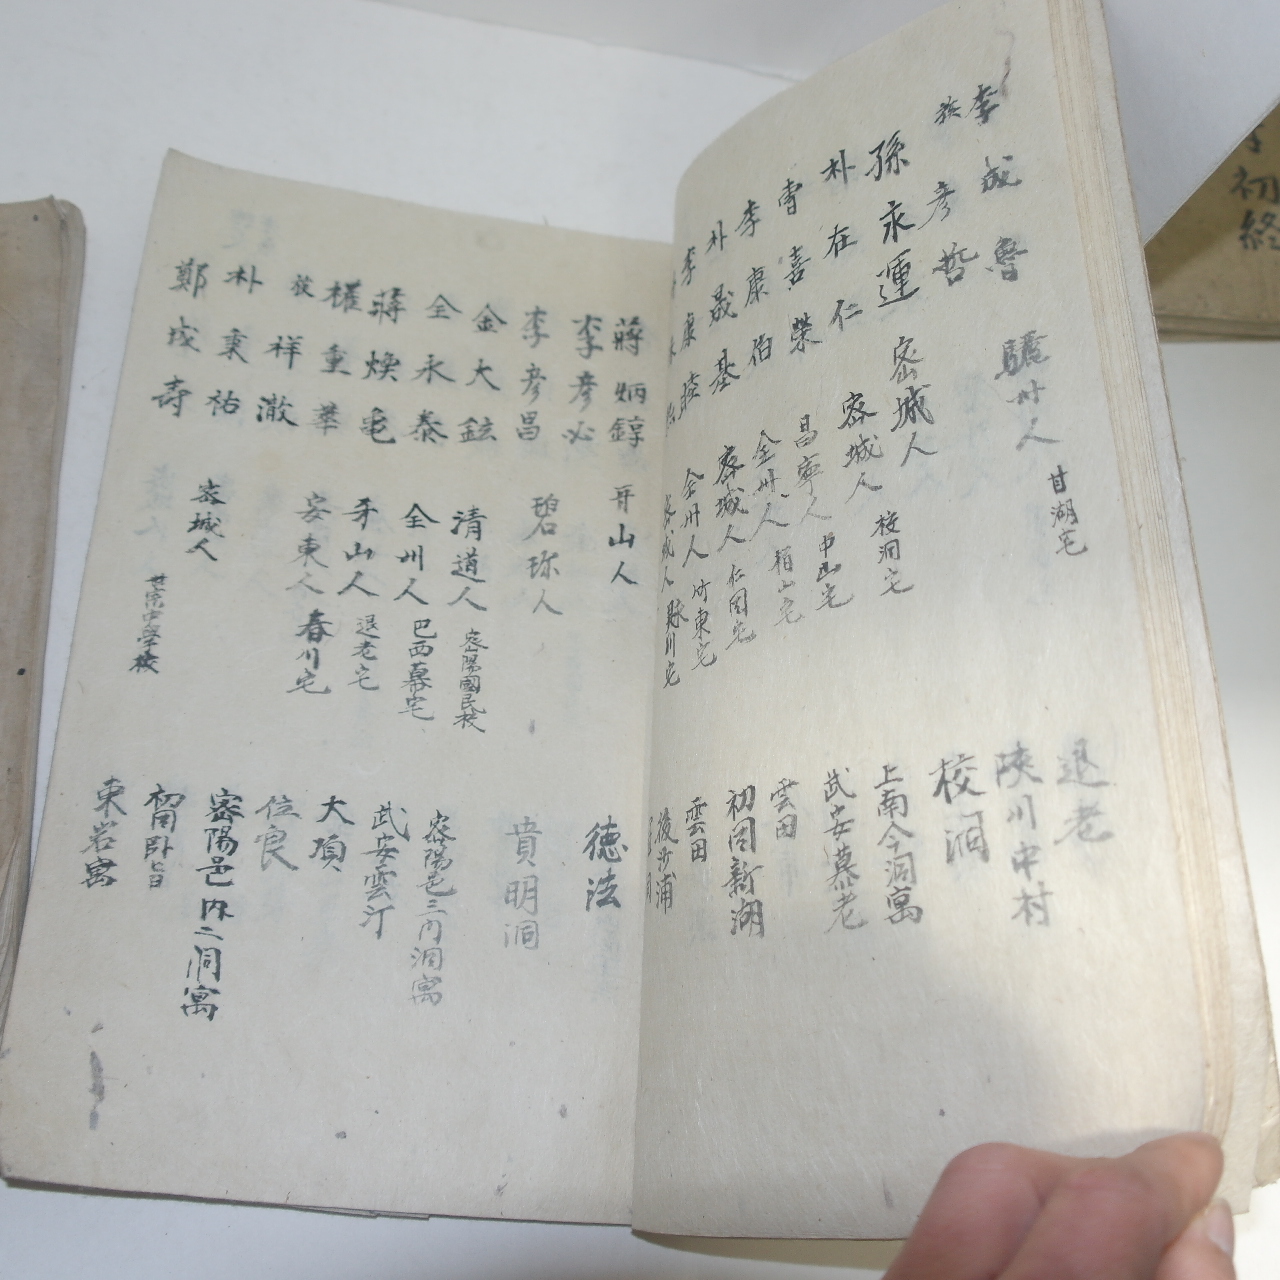 李成魯 驪州人 甘湖宅 退老
族彦哲 陜川中村
孫永運 密城人 校洞
朴在仁 密城人 校洞宅 上南今洞寓
曺喜榮 昌寧人 中山宅 武安慕老
李康伯 全州人 柏山宅 雲田
朴晟基 密城人 仁同宅 初同新湖
李康 全州人 竹東宅 雲田
城人 川宅 後沙浦
蔣炳錞 牙山人 德法
李彦必
李彦昌 碧珍人 賁明洞
金大鉉 清道人 密陽國民校 密陽邑三門洞寓
全永泰 全州人 巴西幕宅 武安雲汀
蔣煥 牙山人 退老宅 大項
權重華 安東人 春川宅 位良
族祥澈 密陽邑內二洞寓
朴秉祐 密城人 世宗中學校 初同臥旨
鄭成壽 東岩寓
初終